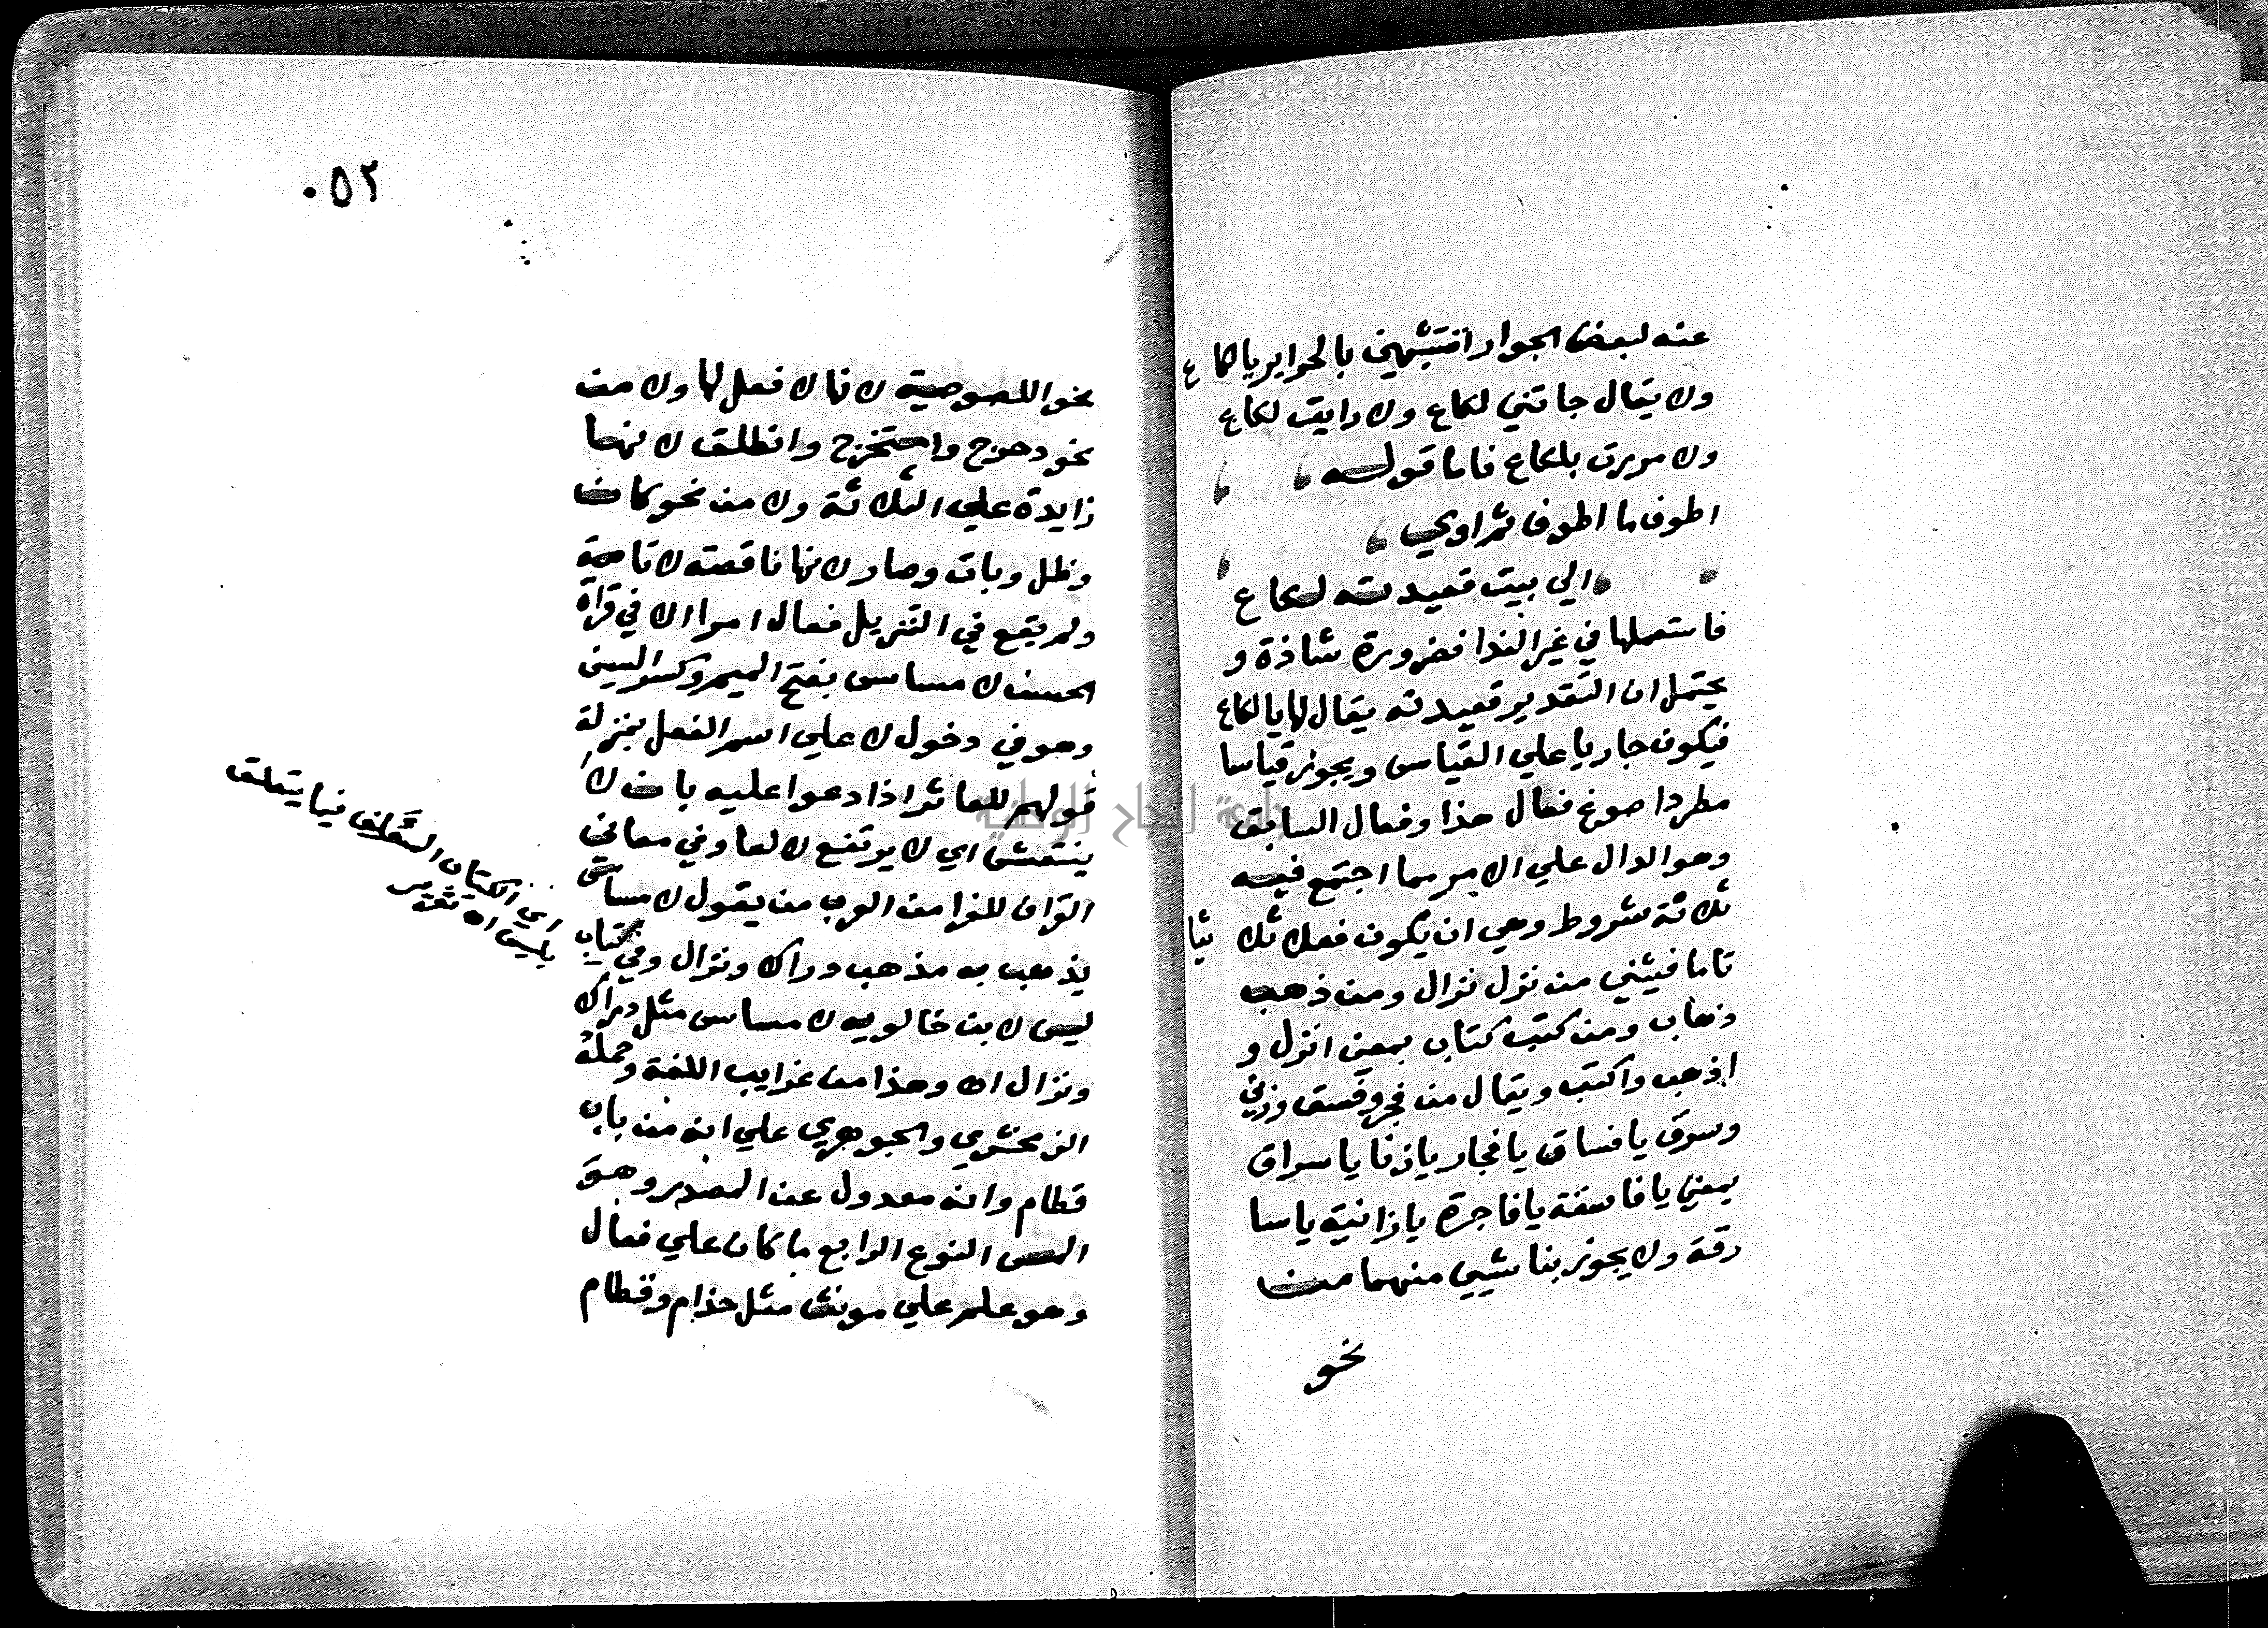 عنه لبعض الجوار أتتشبهين بالحراير يا لكاع
ولا يقال جاتني لكاع ولا رايت لكاع
ولا مررت بلكاع فاما قوله
اطوف ما اطوف ثم اوي
الي بيت قعيدته لكاع
فاستعملها في غير الندا فضرورة شاذة و
يحتمل ان التقدير قعيدته يقال لها يا لكاع
فيكون جاريا علي القياس ويجوز قياسا
مطردا صوغ فعال هذا وفعال السابق
وهو الدال علي الامر مما اجتمع فيه
ثلاثة شروط وهي ان يكون فعلا ثلاثيا
تاما فيبني من نزل نزال ومن ذهب
ذهاب ومن كتب كتاب بمعني انزل و
اذهب واكتب ويقال من فجر وفسق وزني
وسرق يا فساق يا فجار يا زنا يا سراق
بمعني يا فاسقة يا فاجرة يا زانية يا سا
رقة ولا يجوز بنا شيي منهما من
نحو
٠٥٢
نحو اللصوصية لانها لا فعل لها ولا من
نحو دحرج واستخرج وانطلق لانها
زايدة علي الثلاثة ولا من نحو كان
وظل وبات وصار لانها ناقصة لا تامة
ولم يقع في التنزيل فعال امرا الا في قراة
الحسن لا مساس بفتح الميم وكسر السين
وهو في دخول لا علي اسم الفعل بمنزلة
قولهم للعاثر اذا دعوا عليه بان لا
ينتعش اي لا يرتفع لا لعا وفي معاني
القران للفرا من العرب من يقول لا مساس
يذهب به مذهب دراك ونزال وفي كتاب
ليس لابن خالويه لا مساس مثل دراك
ونزال اه وهذا من غرايب اللغة وحمله
الزمخشري والجوهري علي انه من باب
قطام وانه معدول عن المصدر وهو
المس النوع الرابع ما كان علي فعال
وهو علم علي مونث مثل حذام وقطام
اي الكتاب المتعلق فيما يتعلق
بليس اه تقرير
جامعة النجاح الوطنية